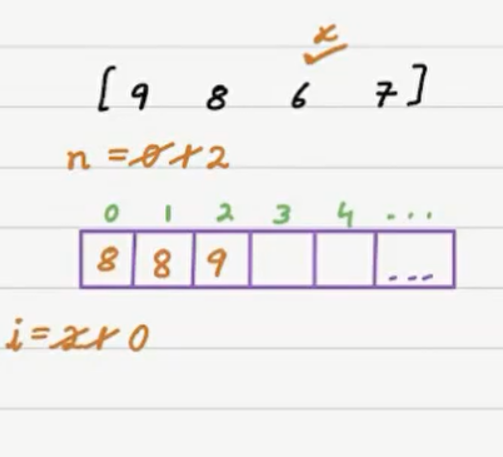 x
[ 9 8 6 7 ]
n = 0 1 2
0 1 2 3 4 ...
8 8 9 ...
i = 2 1 0